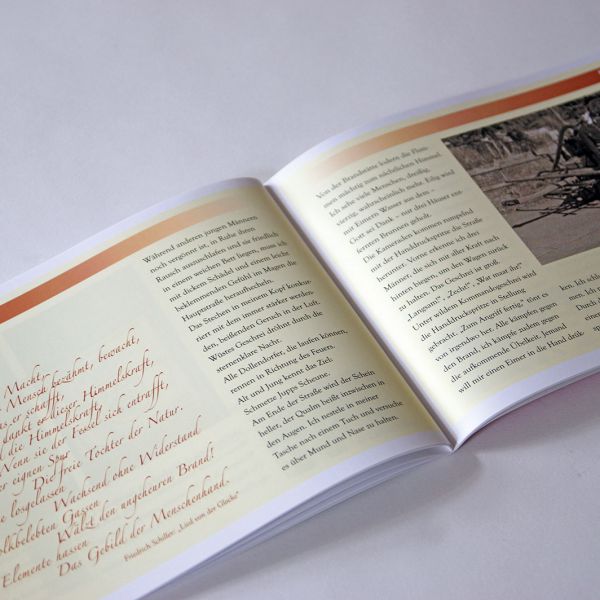 Macht,
Mensch bezähmt, bewacht,
er schafft,
dankt er dieser Himmelskraft,
die Himmelskraft,
Wenn sie der Fessel sich entrafft,
er eignen Spur
Die freie Tochter der Natur.
losgelassen
Wachsend ohne Widerstand
Gassen
Wälzt den ungeheuren Brand!
Elemente hassen
Das Gebild der Menschenhand.
Friedrich Schiller: „Lied von der Glocke“
Während anderen jungen Männern
noch vergönnt ist, in Ruhe ihren
Rausch auszuschlafen und sie friedlich
in einem weichen Bett liegen, muss ich
mit dickem Schädel und einem leicht
beklemmenden Gefühl im Magen die
Hauptstraße heraufhecheln.
Das Stechen in meinem Kopf konkur-
riert mit dem immer stärker werden-
den, beißenden Geruch in der Luft.
Wüstes Geschrei dröhnt durch die
sternenklare Nacht.
Alle Dollendorfer, die laufen können,
rennen in Richtung des Feuers,
Alt und Jung kennt die Ziel:
Schmette Jupps Scheune.
Am Ende der Straße wird der Schein
heller, der Qualm beißt inzwischen in
den Augen. Ich nestele in meiner
Tasche nach einem Tuch und versuche
es über Mund und Nase zu halten.
Von der Brandstätte lodern die Flam-
men mächtig zum nächtlichen Himmel.
Ich sehe viele Menschen, dreißig,
vierzig, wahrscheinlich mehr. Eilig wird
mit Eimern Wasser aus dem –
Gott sei Dank – nur drei Häuser ent-
fernten Brunnen geholt.
Die Kameraden kommen rumpelnd
mit der Handdruckspritze die Straße
herunter. Vorne erkenne ich drei
Männer, die sich mit aller Kraft nach
hinten biegen, um den Wagen zurück
zu halten. Das Geschrei ist groß.
„Langsam“, „Zieht“, „Wat maat ihr!“
Unter wilden Kommandos wird
die Handdruckspritze in Stellung
gebracht. „Zum Angriff fertig,“ tönt es
von irgendwo her. Alle kämpfen gegen
den Brand, ich kämpfe zudem gegen
die aufkommende Übelkeit. Jemand
will mir einen Eimer in die Hand drük-
ken. Ich
Ich
Durch